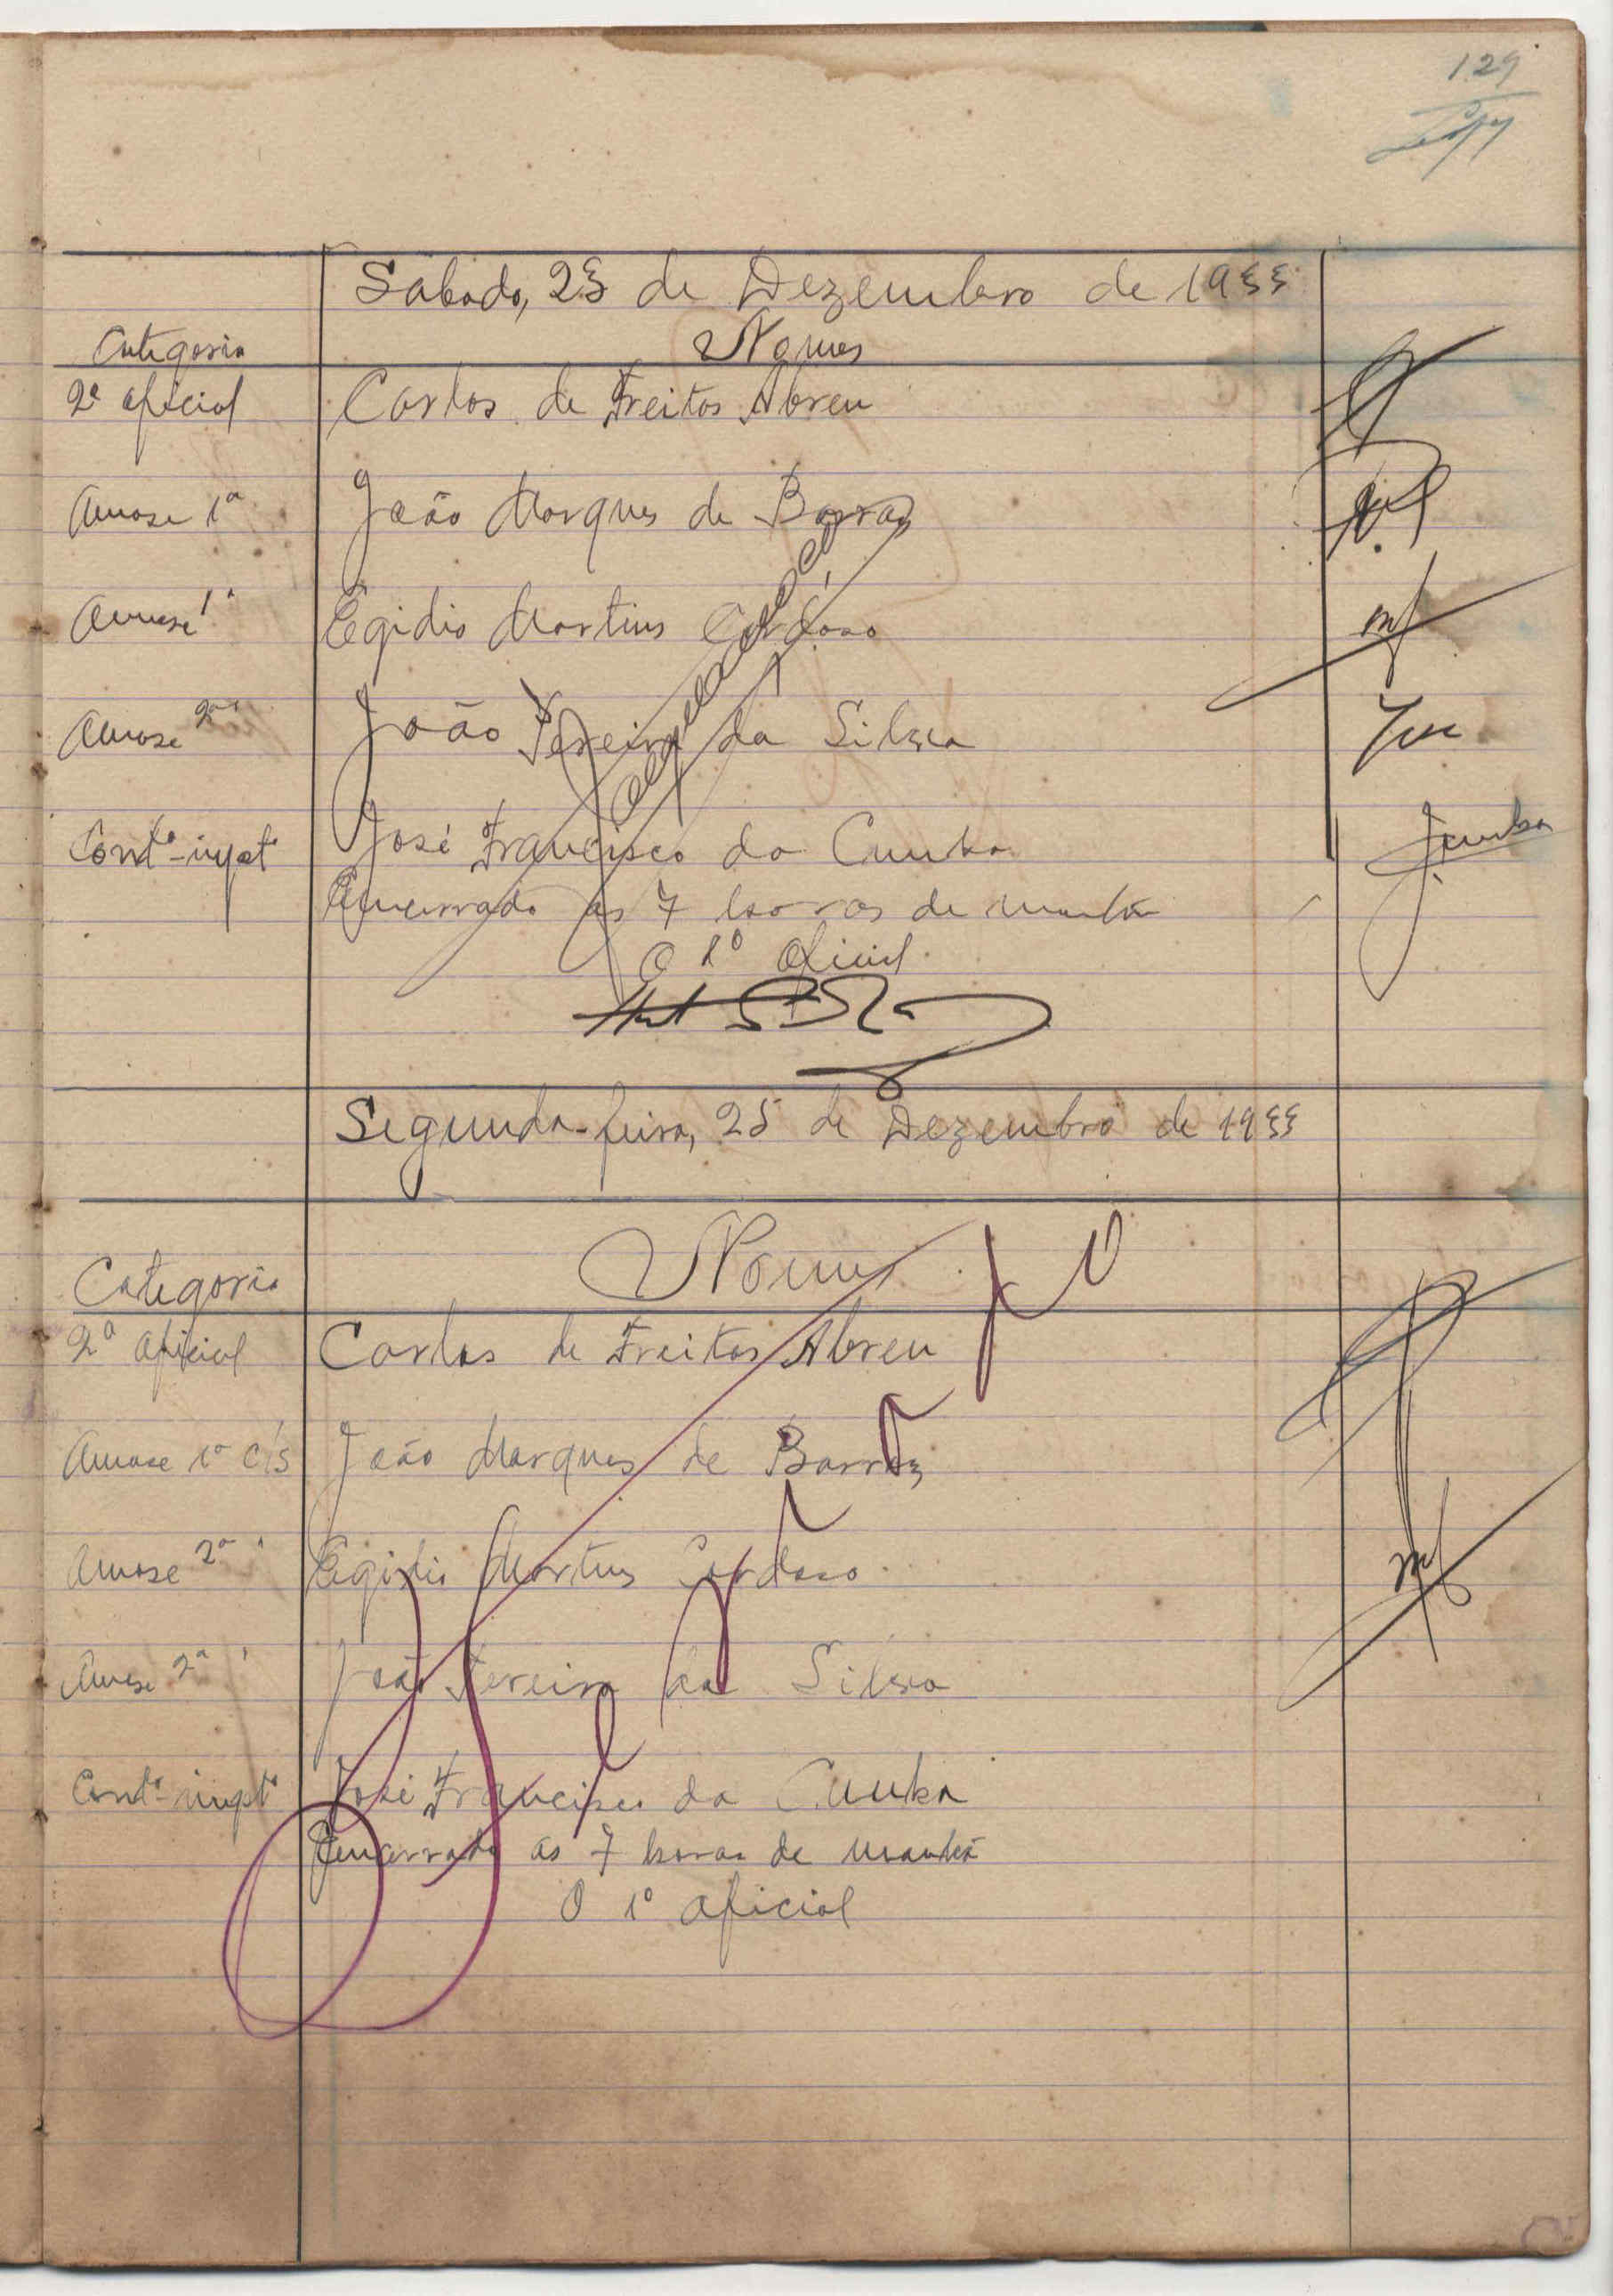 129
Sabado, 23 de Dezembro de 1933
Categoria Nomes
2º oficial Carlos de Freitas Abreu
Amase 1ª João Marques de Barros
Amase 1ª Egidio Martins Cardoso
Amase 2ª João Pereira da Silva
José Francisco da Cunha JCunha
Encerrado as 7 horas da manhã
O 1º Oficial
Segunda-feira, 25 de Dezembro de 1933
Categoria Nomes
2º oficial Carlos de Freitas Abreu
Amase 1ª João Marques de Barros
Amase 2ª Egidio Martins Cardoso
Amase 2ª João Pereira da Silva
José Francisco da Cunha
Encerrado as 7 horas da manhã
O 1º oficial